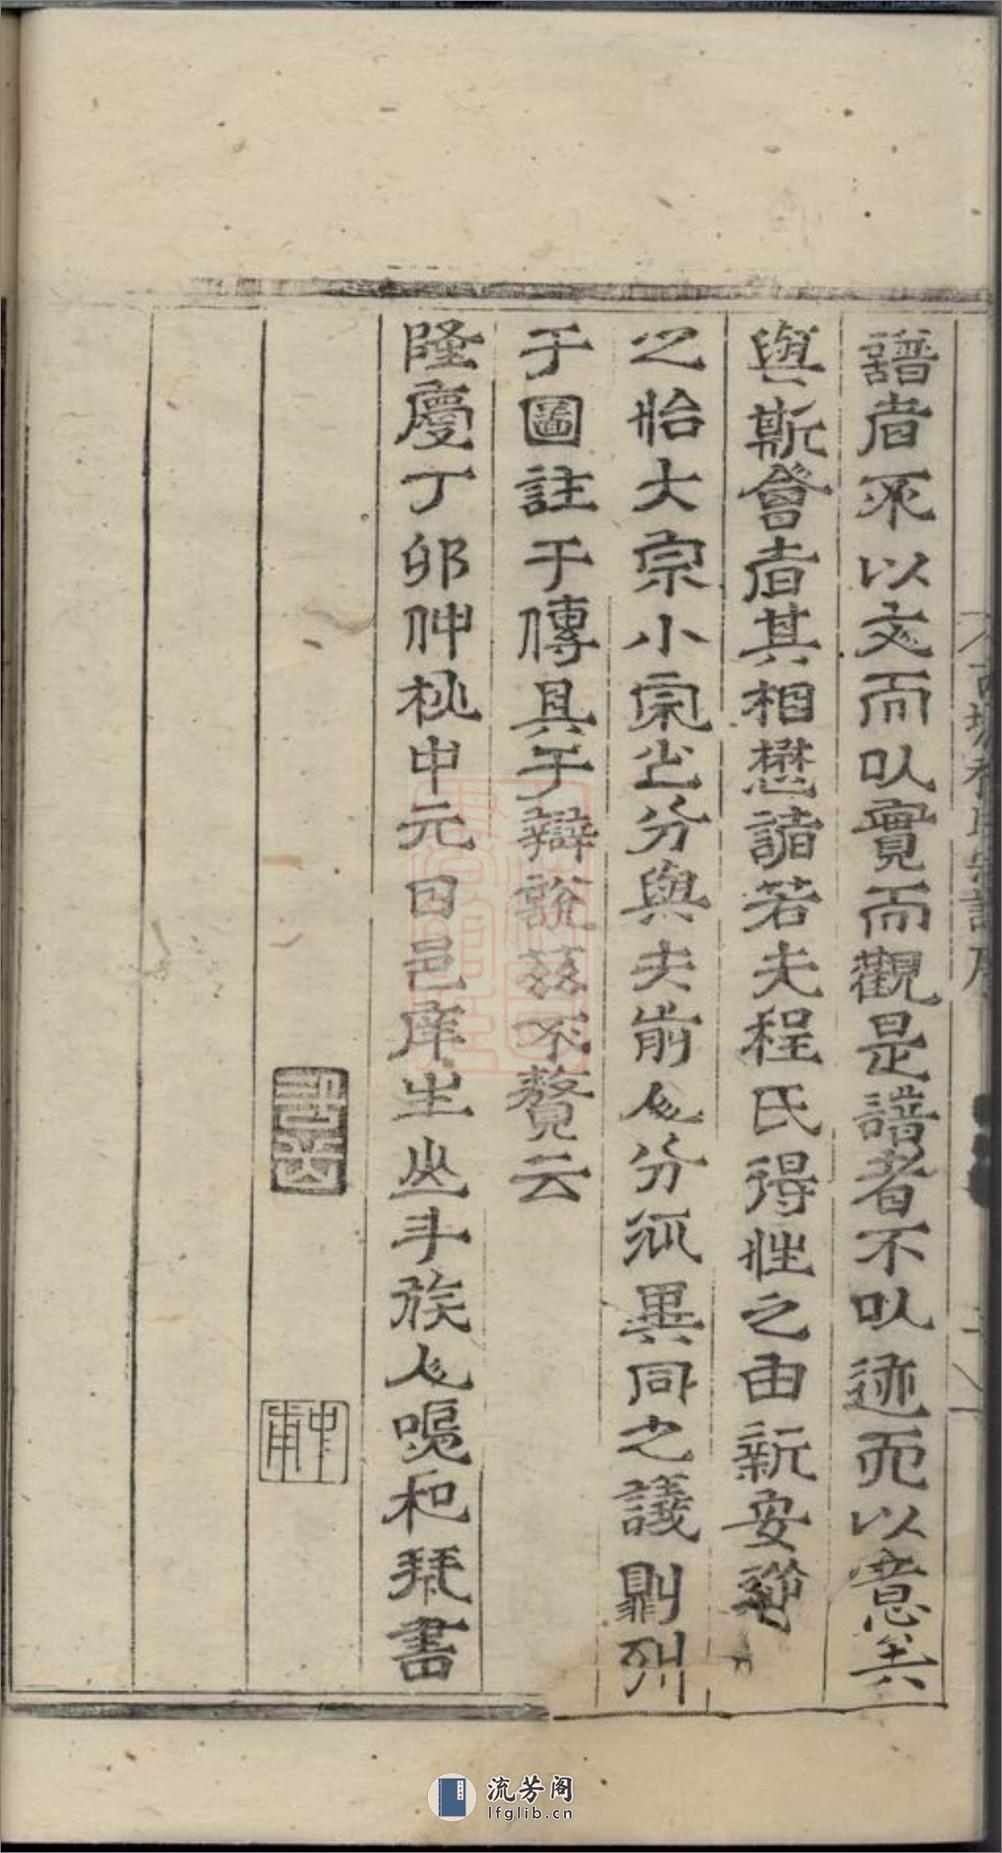 譜者不以文而以實而觀是譜者不以迹而以意其
與斯會者其相懋諸若夫程氏得姓之由新安
之始大宗小宗之分與夫前人分派異同之議則列
于圖註于傳具于辯說茲不贅云
隆慶丁卯仲秋中元日邑庠生山斗族人鳴和拜書
中甫
流芳阁
lfglib.cn